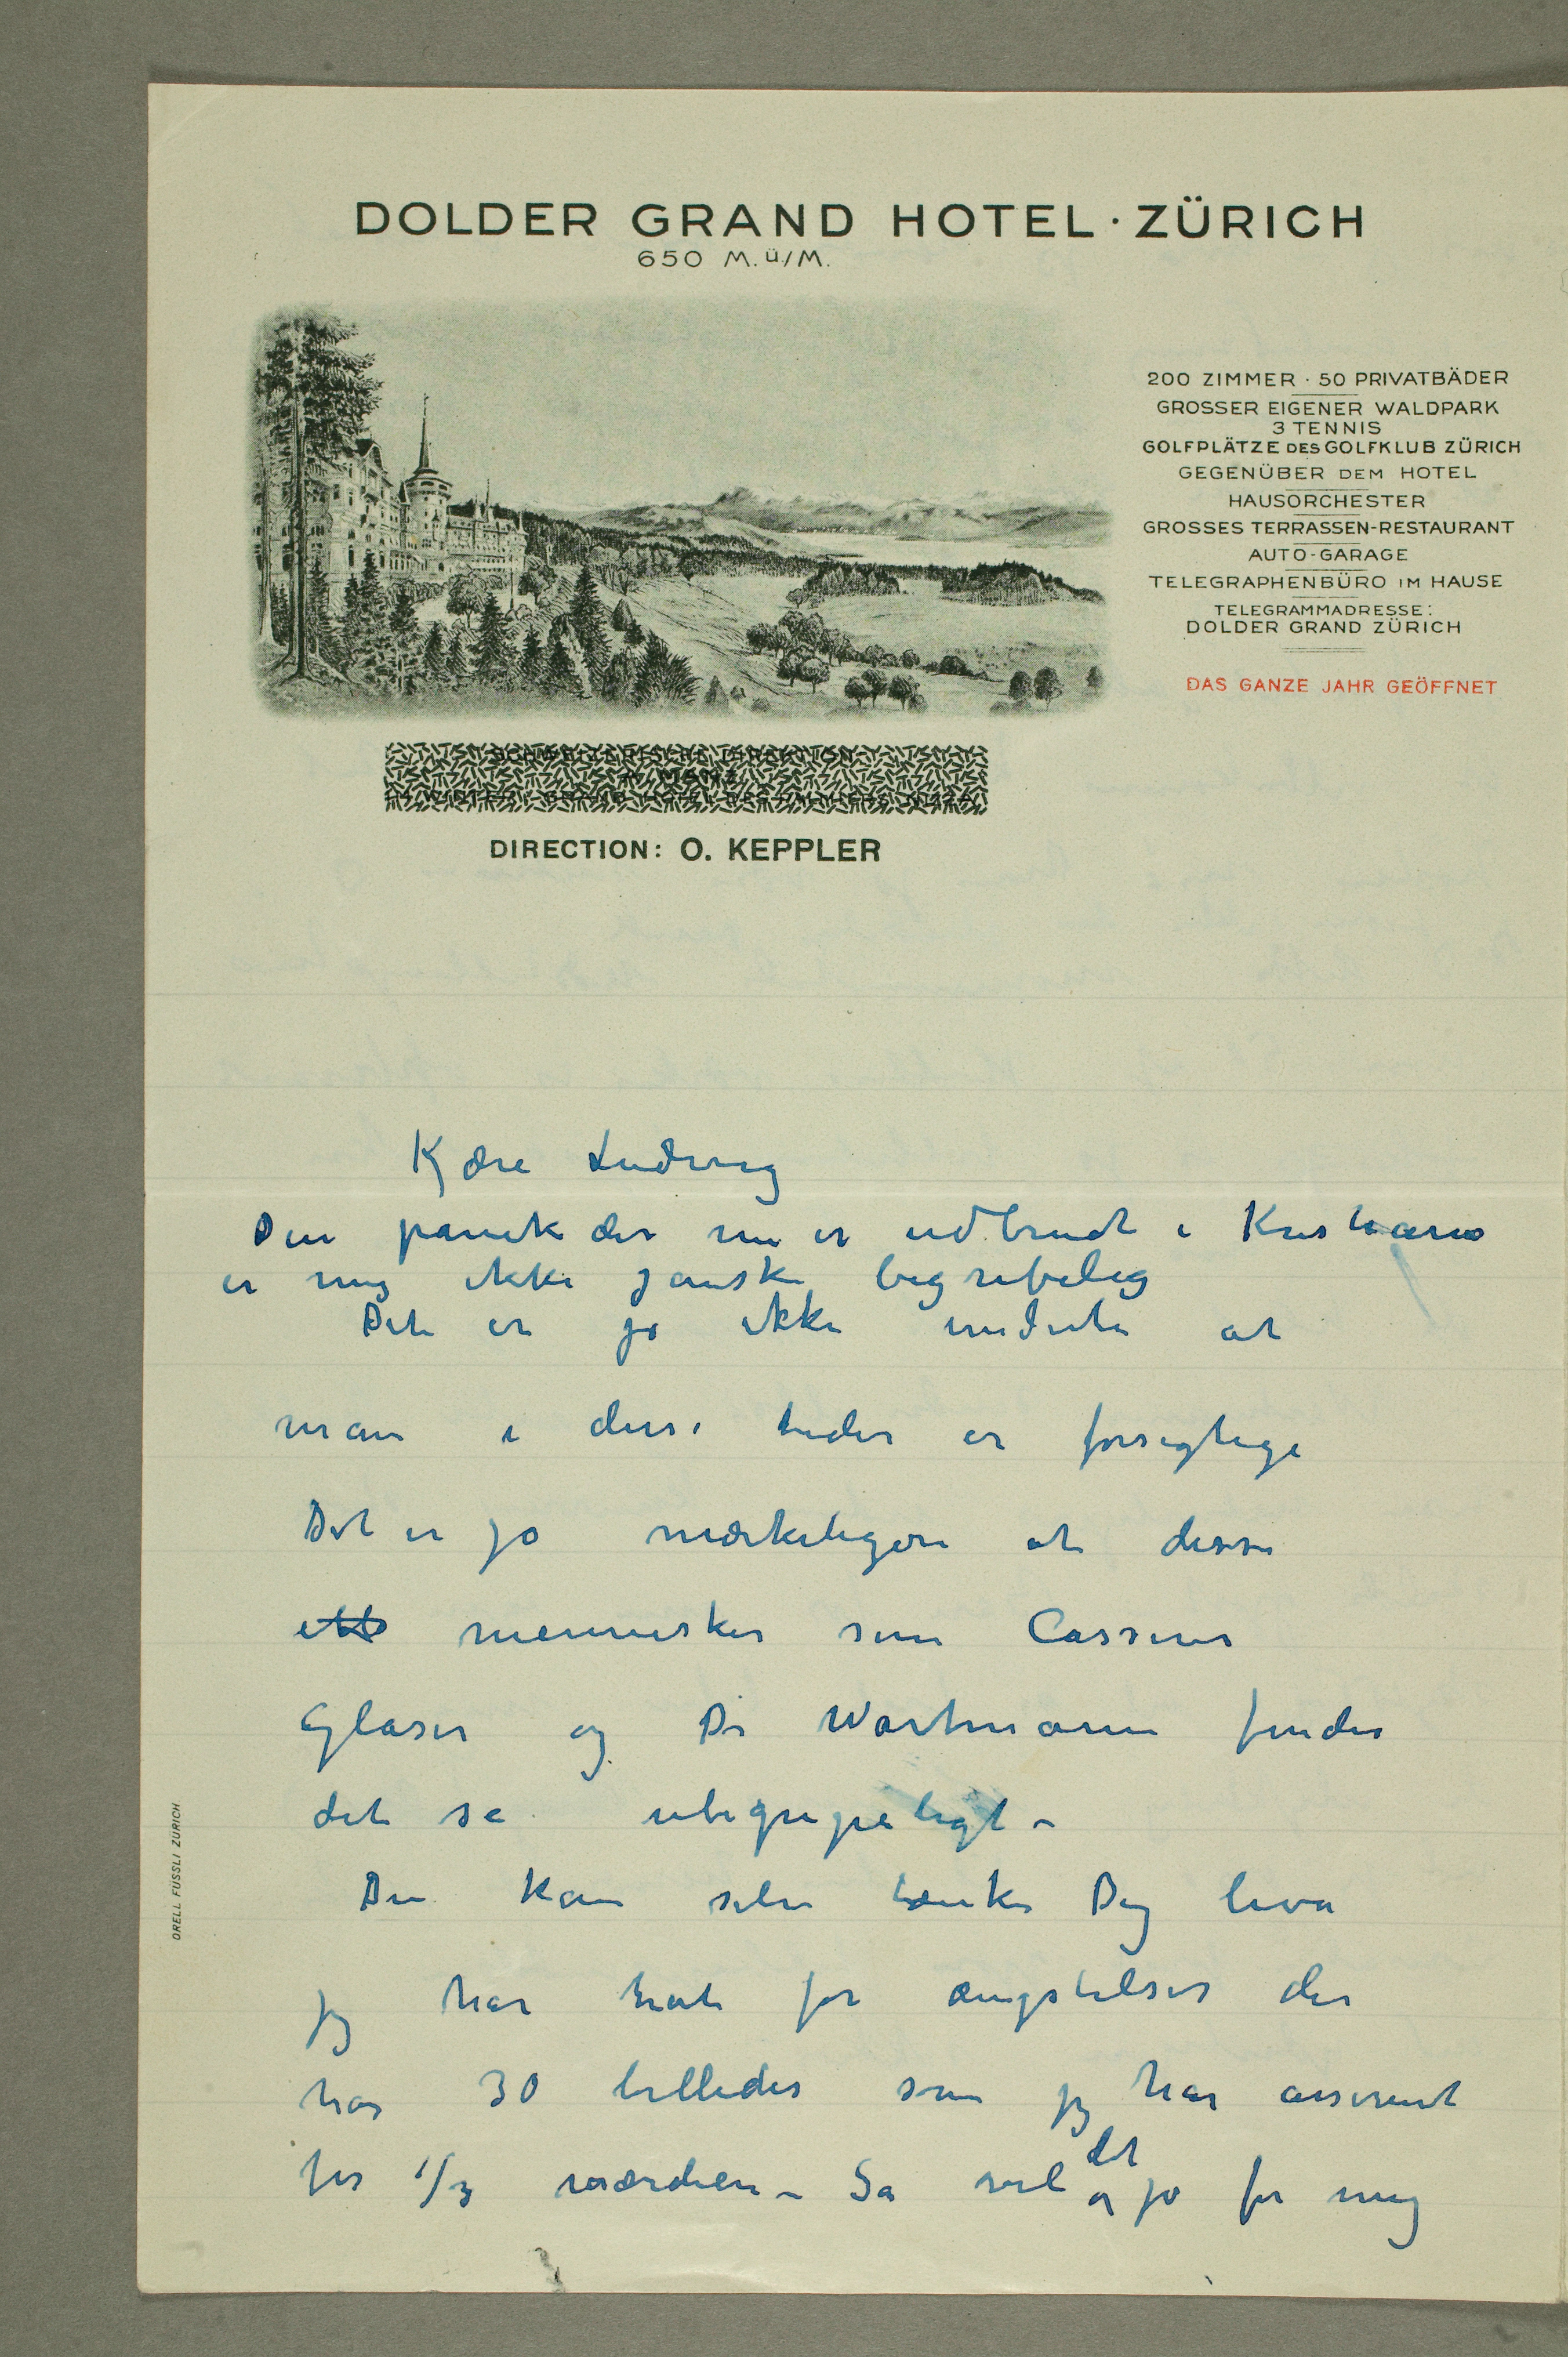 DOLDER GRAND HOTEL · ZÜRICH
650 M.ü/M.
200 ZIMMER · 50 PRIVATBÄDER
GROSSER EIGENER WALDPARK
3 TENNIS
GOLFPLÄTZE DES GOLFKLUB ZÜRICH
GEGENÜBER DEM HOTEL
HAUSORCHESTER
GROSSES TERRASSEN-RESTAURANT
AUTO-GARAGE
TELEGRAPHENBÜRO IM HAUSE
TELEGRAMMADRESSE:
DOLDER GRAND ZÜRICH
DAS GANZE JAHR GEÖFFNET
DIRECTION: O. KEPPLER
Kjære Ludvig
Den panik der nu er udbrudt i Kristiania
er mig ikke ganske begribelig
Det er jo ikke underli at
man i disse tider er forsigtige
Det er jo mærkeligere at disse
mennesker som Cassirer
Glaser og Dr Wartmann finder
det så ubegripeligt –
Du kan selv tænke Dig hva
jeg har hat for ængstelser der
har 30 billeder som jeg har assureret
for 1/3 værdien – Så vil det
og jo for mig
ORELL FÜSSLI ZÜRICH